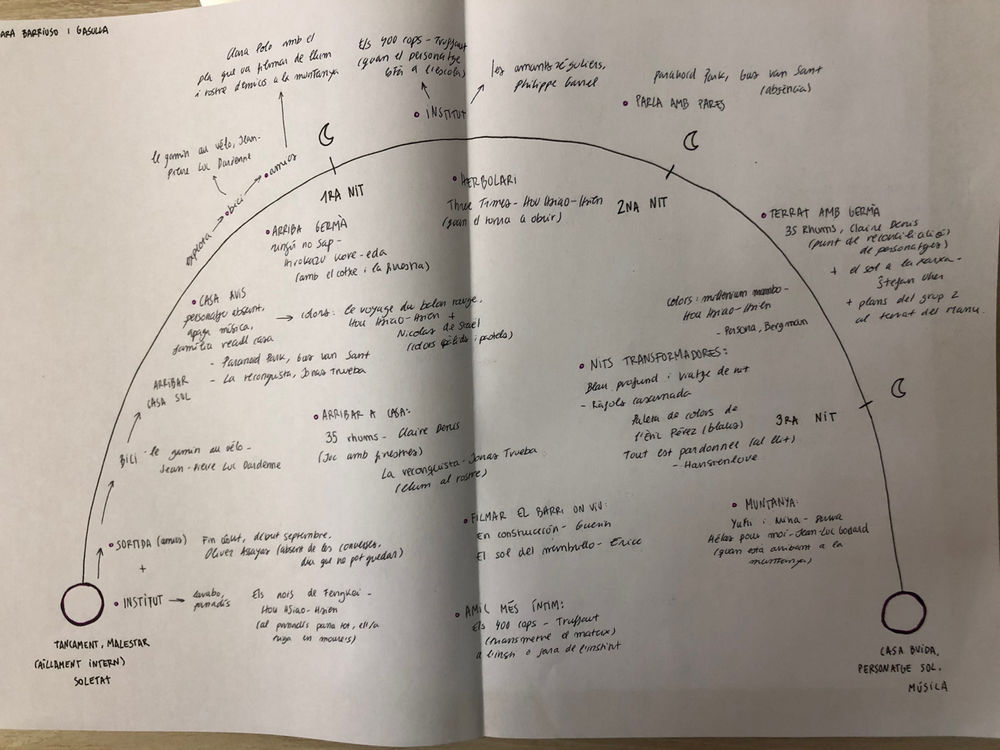 ARA BARRIUSO I GASULLA
Clara Polo amb el
pla que va filmar de llum
i rostre d'amics a la muntanya
Els 400 cops - Truffaut
(quan el personatge
a l'escola)
INSTITUT
les amants réguliers,
Philippe Garrel
paranoid Park, Gus van Sant
(absència)
PARLA AMB PARES
le gamin au vélo, Jean-
pierre Luc Dardenne
explora → bici → amics
1RA NIT
HERBOLARI
Three Times - Hou Hsiao-Hsien
(quan el torna a obrir)
2NA NIT
ARRIBA GERMÀ
ningú no sap -
Hirokazu Kore-eda
(amb el cotxe i la finestra)
TERRAT AMB GERMÀ
35 Rhums, Claire Denis
(punt de reconciliació
de personatges)
+ el sol a la xarxa -
Štefan Uher
+ plans del grup 2
al terrat del Manu.
CASA AVIS
personatge absent,
apaga música,
família recull casa
- Paranoid Park, Gus van Sant
- La reconquista, Jonas Trueba
→ colors: le voyage du balon rouge,
Hou Hsiao-Hsien +
Nicolas de Stael
(colors pàlids i pastels)
colors: millenium mambo -
Hou Hsiao-Hsien
- Persona, Bergman
NITS TRANSFORMADORES:
Blau profund i viatge de nit
- Ràfols Casamada
Paleta de colors de
l'Èric Pérez (blaus)
Tout est pardonné (al llit)
- Hansen love
3RA NIT
ARRIBAR
CASA SOL
ARRIBAR A CASA:
35 rhums - Claire Denis
(Joc amb finestres)
La reconquista - Jonas Trueba
(llum al rostre)
BICI · le gamin au vélo -
Jean-Pierre Luc Dardenne
FILMAR EL BARRI ON VIU:
En construcción - Guerin
El sol del membrillo - Erice
MUNTANYA:
Yuki i Nina - Suwa
Hélas pour moi - Jean-Luc Godard
(quan està arribant a la
muntanya)
SORTIDA (amics)
Fin août, début septembre,
Olivier Assayas (absent de les converses,
diu que no pot quedar)
+
INSTITUT → lavabo,
passadís
Els nois de Fengkei -
Hou Hsiao-Hsien
(al passadís passa tot, ell/a
AMIC MÉS ÍNTIM:
Els 400 cops - Truffaut
(transmetre el mateix)
a l'insti o fora de l'institut
TANCAMENT, MALESTAR
(AÏLLAMENT INTERN)
SOLETAT
CASA BUIDA,
PERSONATGE SOL.
MÚSICA